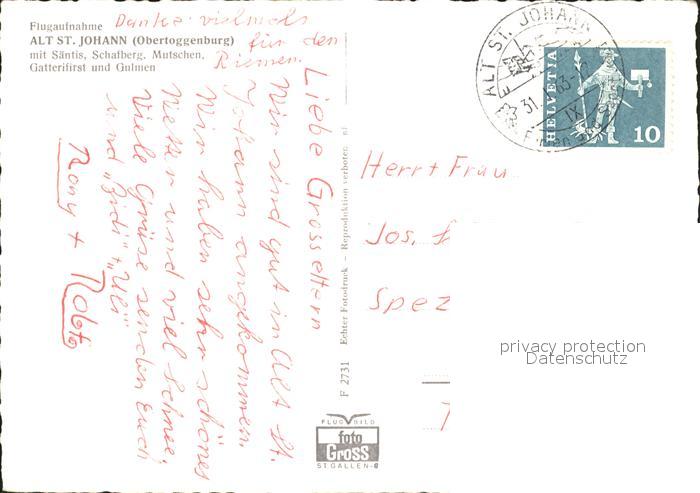 Flugaufnahme
ALT ST. JOHANN (Obertoggenburg)
mit Säntis, Schafberg, Mutschen,
Gatterifirst und Gulmen
Danke vielmals
für den
Riemen.
Liebe Grosseltern
Wir sind gut in Alt St.
Johann angekommen.
Wir haben sehr schönes
Wetter und viel Schnee.
Viele Grüsse senden Euch
und "Zidi" + "Ueli"
Rony + Roberto
F 2731 Echter Fotodruck — Reproduktion verboten
FLUGBILD
foto
Gross
ST. GALLEN
ALT ST. JOHANN
31.
63-
IX
HELVETIA
10
Herr + Frau
Jos.
Spez
privacy protection
Datenschutz